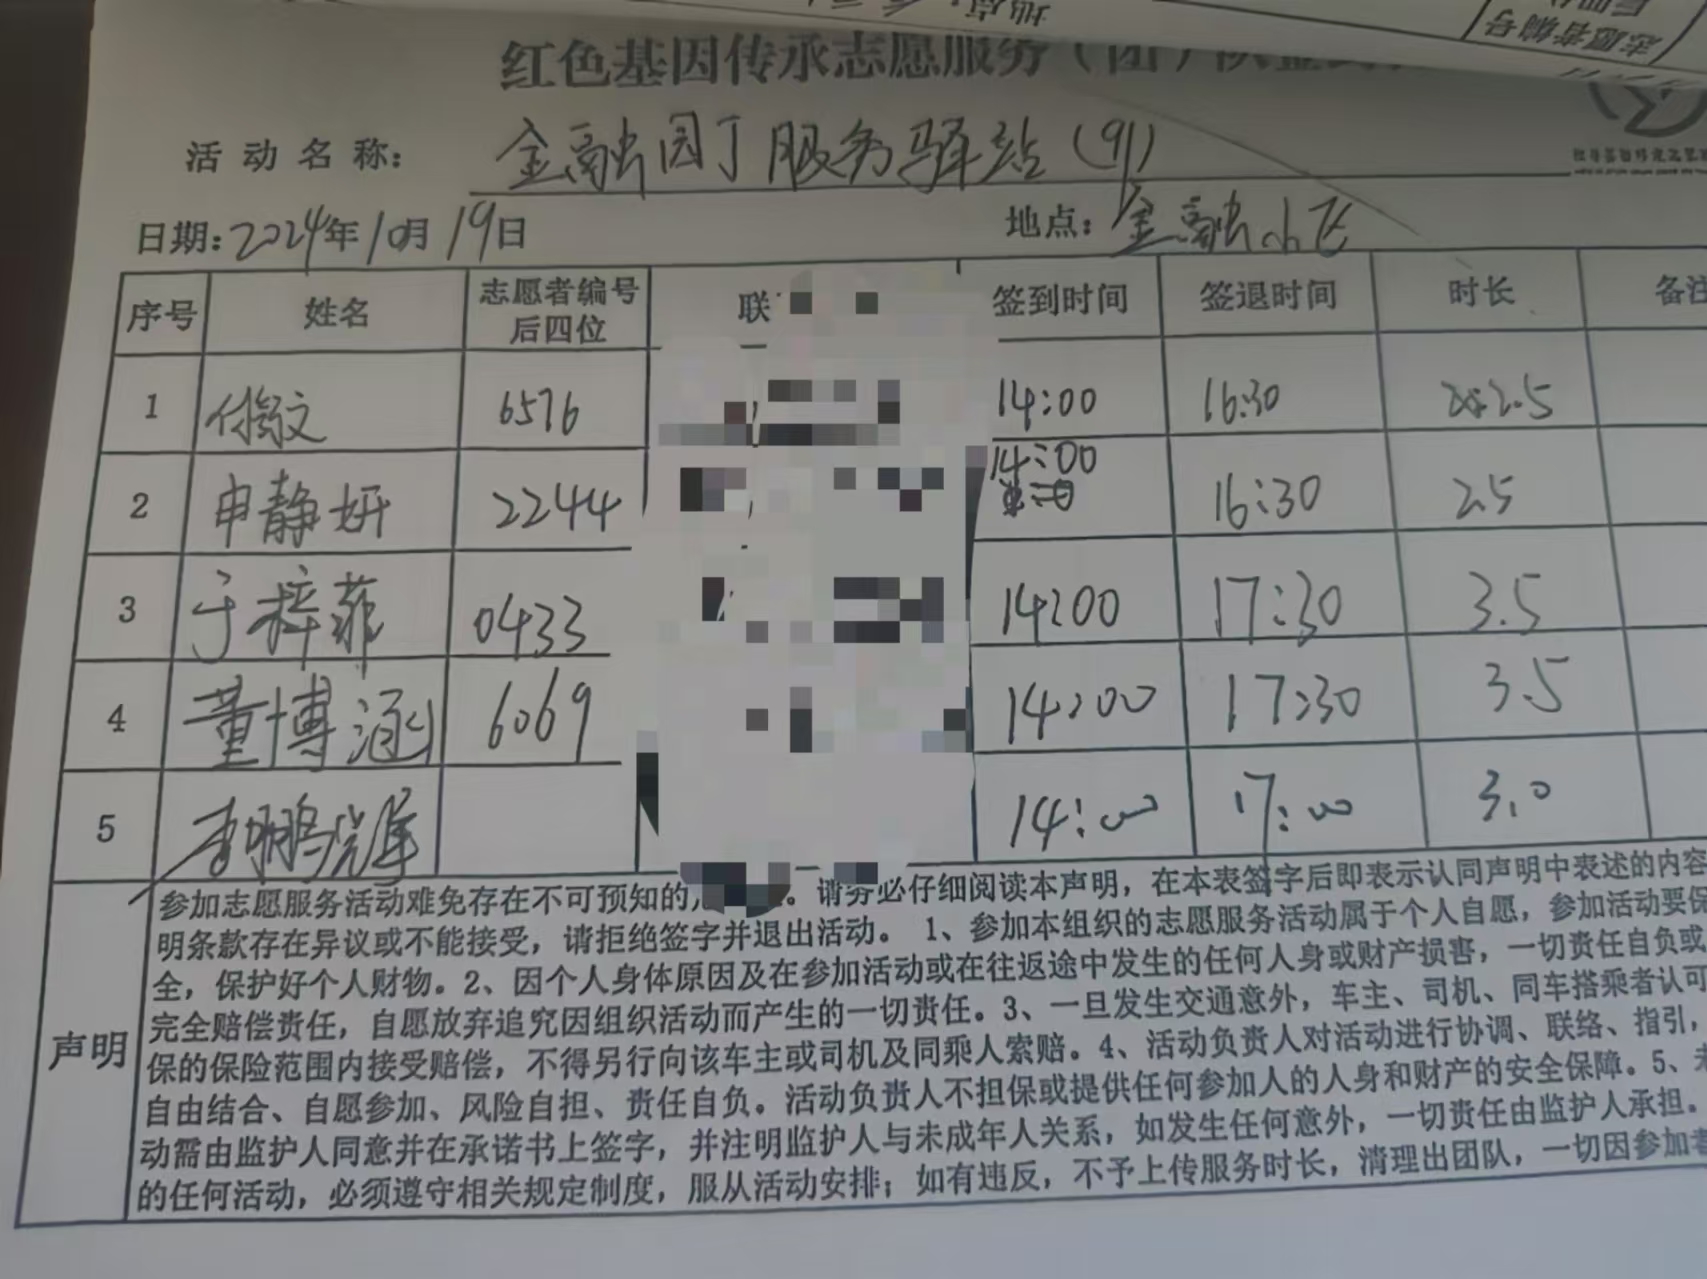 地点:
志愿者编号
红色基因传承志愿服务(团)队签到
活动名称: 金融园丁服务驿站(91)
日期:2024年10月19日 地点:金融小飞
序号 姓名 志愿者编号后四位 联 签到时间 签退时间 时长 备注
1 6576 14:00 16:30 2.5
2 申静妍 2244 14:00 16:30 2.5
3 于梓菲 0433 14:00 17:30 3.5
4 董博涵 6069 14:00 17:30 3.5
5 14:00 17:00 3.0
声明
参加志愿服务活动难免存在不可预知的。请务必仔细阅读本声明,在本表签字后即表示认同声明中表述的内容
明条款存在异议或不能接受,请拒绝签字并退出活动。 1、参加本组织的志愿服务活动属于个人自愿,参加活动要保
全,保护好个人财物。2、因个人身体原因及在参加活动或在往返途中发生的任何人身或财产损害,一切责任自负或
完全赔偿责任,自愿放弃追究因组织活动而产生的一切责任。3、一旦发生交通意外,车主、司机、同车搭乘者认可
保的保险范围内接受赔偿,不得另行向该车主或司机及同乘人索赔。4、活动负责人对活动进行协调、联络、指引,
自由结合、自愿参加、风险自担、责任自负。活动负责人不担保或提供任何参加人的人身和财产的安全保障。5、未
动需由监护人同意并在承诺书上签字,并注明监护人与未成年人关系,如发生任何意外,一切责任由监护人承担。
的任何活动,必须遵守相关规定制度,服从活动安排;如有违反,不予上传服务时长,清理出团队,一切因参加者